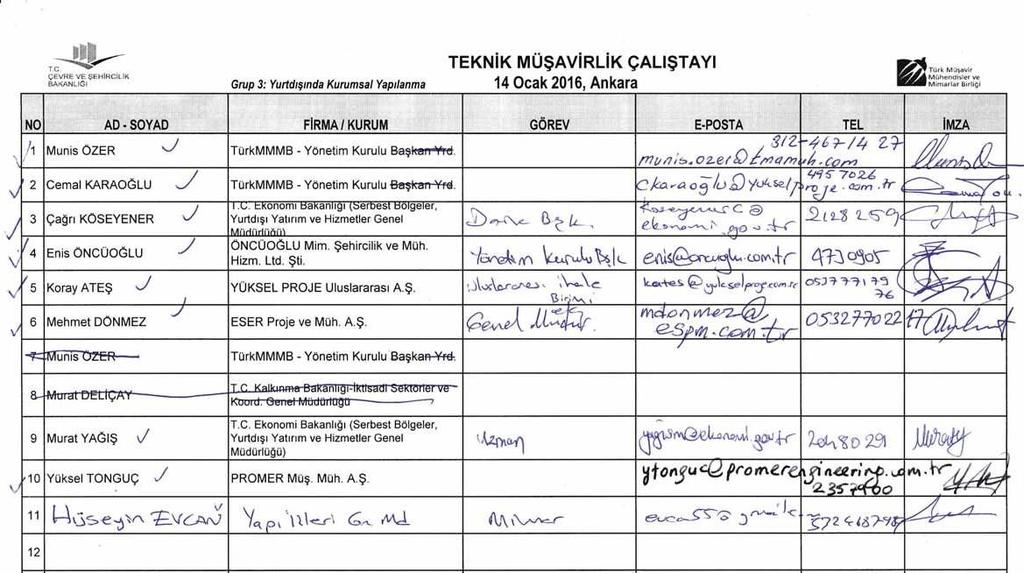 T.C.
ÇEVRE VE ŞEHİRCİLİK
BAKANLIĞI
TEKNİK MÜŞAVİRLİK ÇALIŞTAYI
Grup 3: Yurtdışında Kurumsal Yapılanma
14 Ocak 2016, Ankara
Türk Müşavir
Mühendisler ve
Mimarlar Birliği
NO AD - SOYAD FİRMA / KURUM GÖREV E-POSTA TEL İMZA
1 Munis ÖZER TürkMMMB - Yönetim Kurulu Başkan Yrd. munis.ozer@tmamuh.com 312-467 14 27
2 Cemal KARAOĞLU TürkMMMB - Yönetim Kurulu Başkan Yrd. ckaraoglu@yukselproje.com.tr 495 7026
3 Çağrı KÖSEYENER T.C. Ekonomi Bakanlığı (Serbest Bölgeler,
Yurtdışı Yatırım ve Hizmetler Genel
Müdürlüğü)
Daire Bşk. ekonomi.gov.tr 2128259
4 Enis ÖNCÜOĞLU ÖNCÜOĞLU Mim. Şehircilik ve Müh.
Hizm. Ltd. Şti.
Yönetim Kurulu Bşk enis@oncuoglu.com.tr 4730905
5 Koray ATEŞ YÜKSEL PROJE Uluslararası A.Ş. Uluslararası ihale
Birimi kates@yukselproje.com.tr 053777179
76
6 Mehmet DÖNMEZ ESER Proje ve Müh. A.Ş. Genel Müdür. mdonmez@
espm.com.tr 05327702217
7 Munis ÖZER TürkMMMB - Yönetim Kurulu Başkan Yrd.
8 Murat DELİÇAY T.C. Kalkınma Bakanlığı-İktisadi Sektörler ve
Koord. Genel Müdürlüğü
9 Murat YAĞIŞ T.C. Ekonomi Bakanlığı (Serbest Bölgeler,
Yurtdışı Yatırım ve Hizmetler Genel
Müdürlüğü)
Uzman yagism@ekonomi.gov.tr 2048029
10 Yüksel TONGUÇ PROMER Müş. Müh. A.Ş. ytonguc@promerengineering.com.tr
2357400
11 Hüseyin EVCAN Yapı İşleri Gn Md Mimar
12